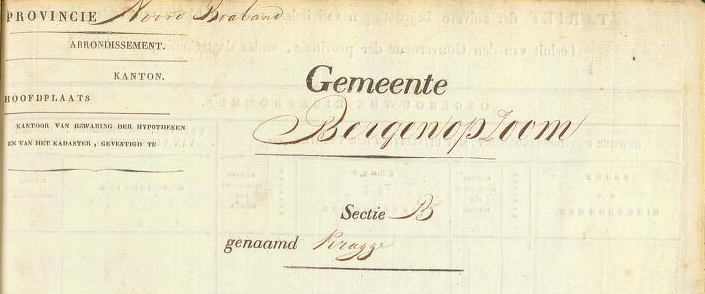 PROVINCIE Noord Braband
ARRONDISSEMENT.
KANTON.
HOOFDPLAATS
KANTOOR VAN BEWARING DER HYPOTHEKEN
EN VAN HET KADASTER, GEVESTIGD TE
Gemeente
Bergen op Zoom
Sectie B
genaamd Kragge